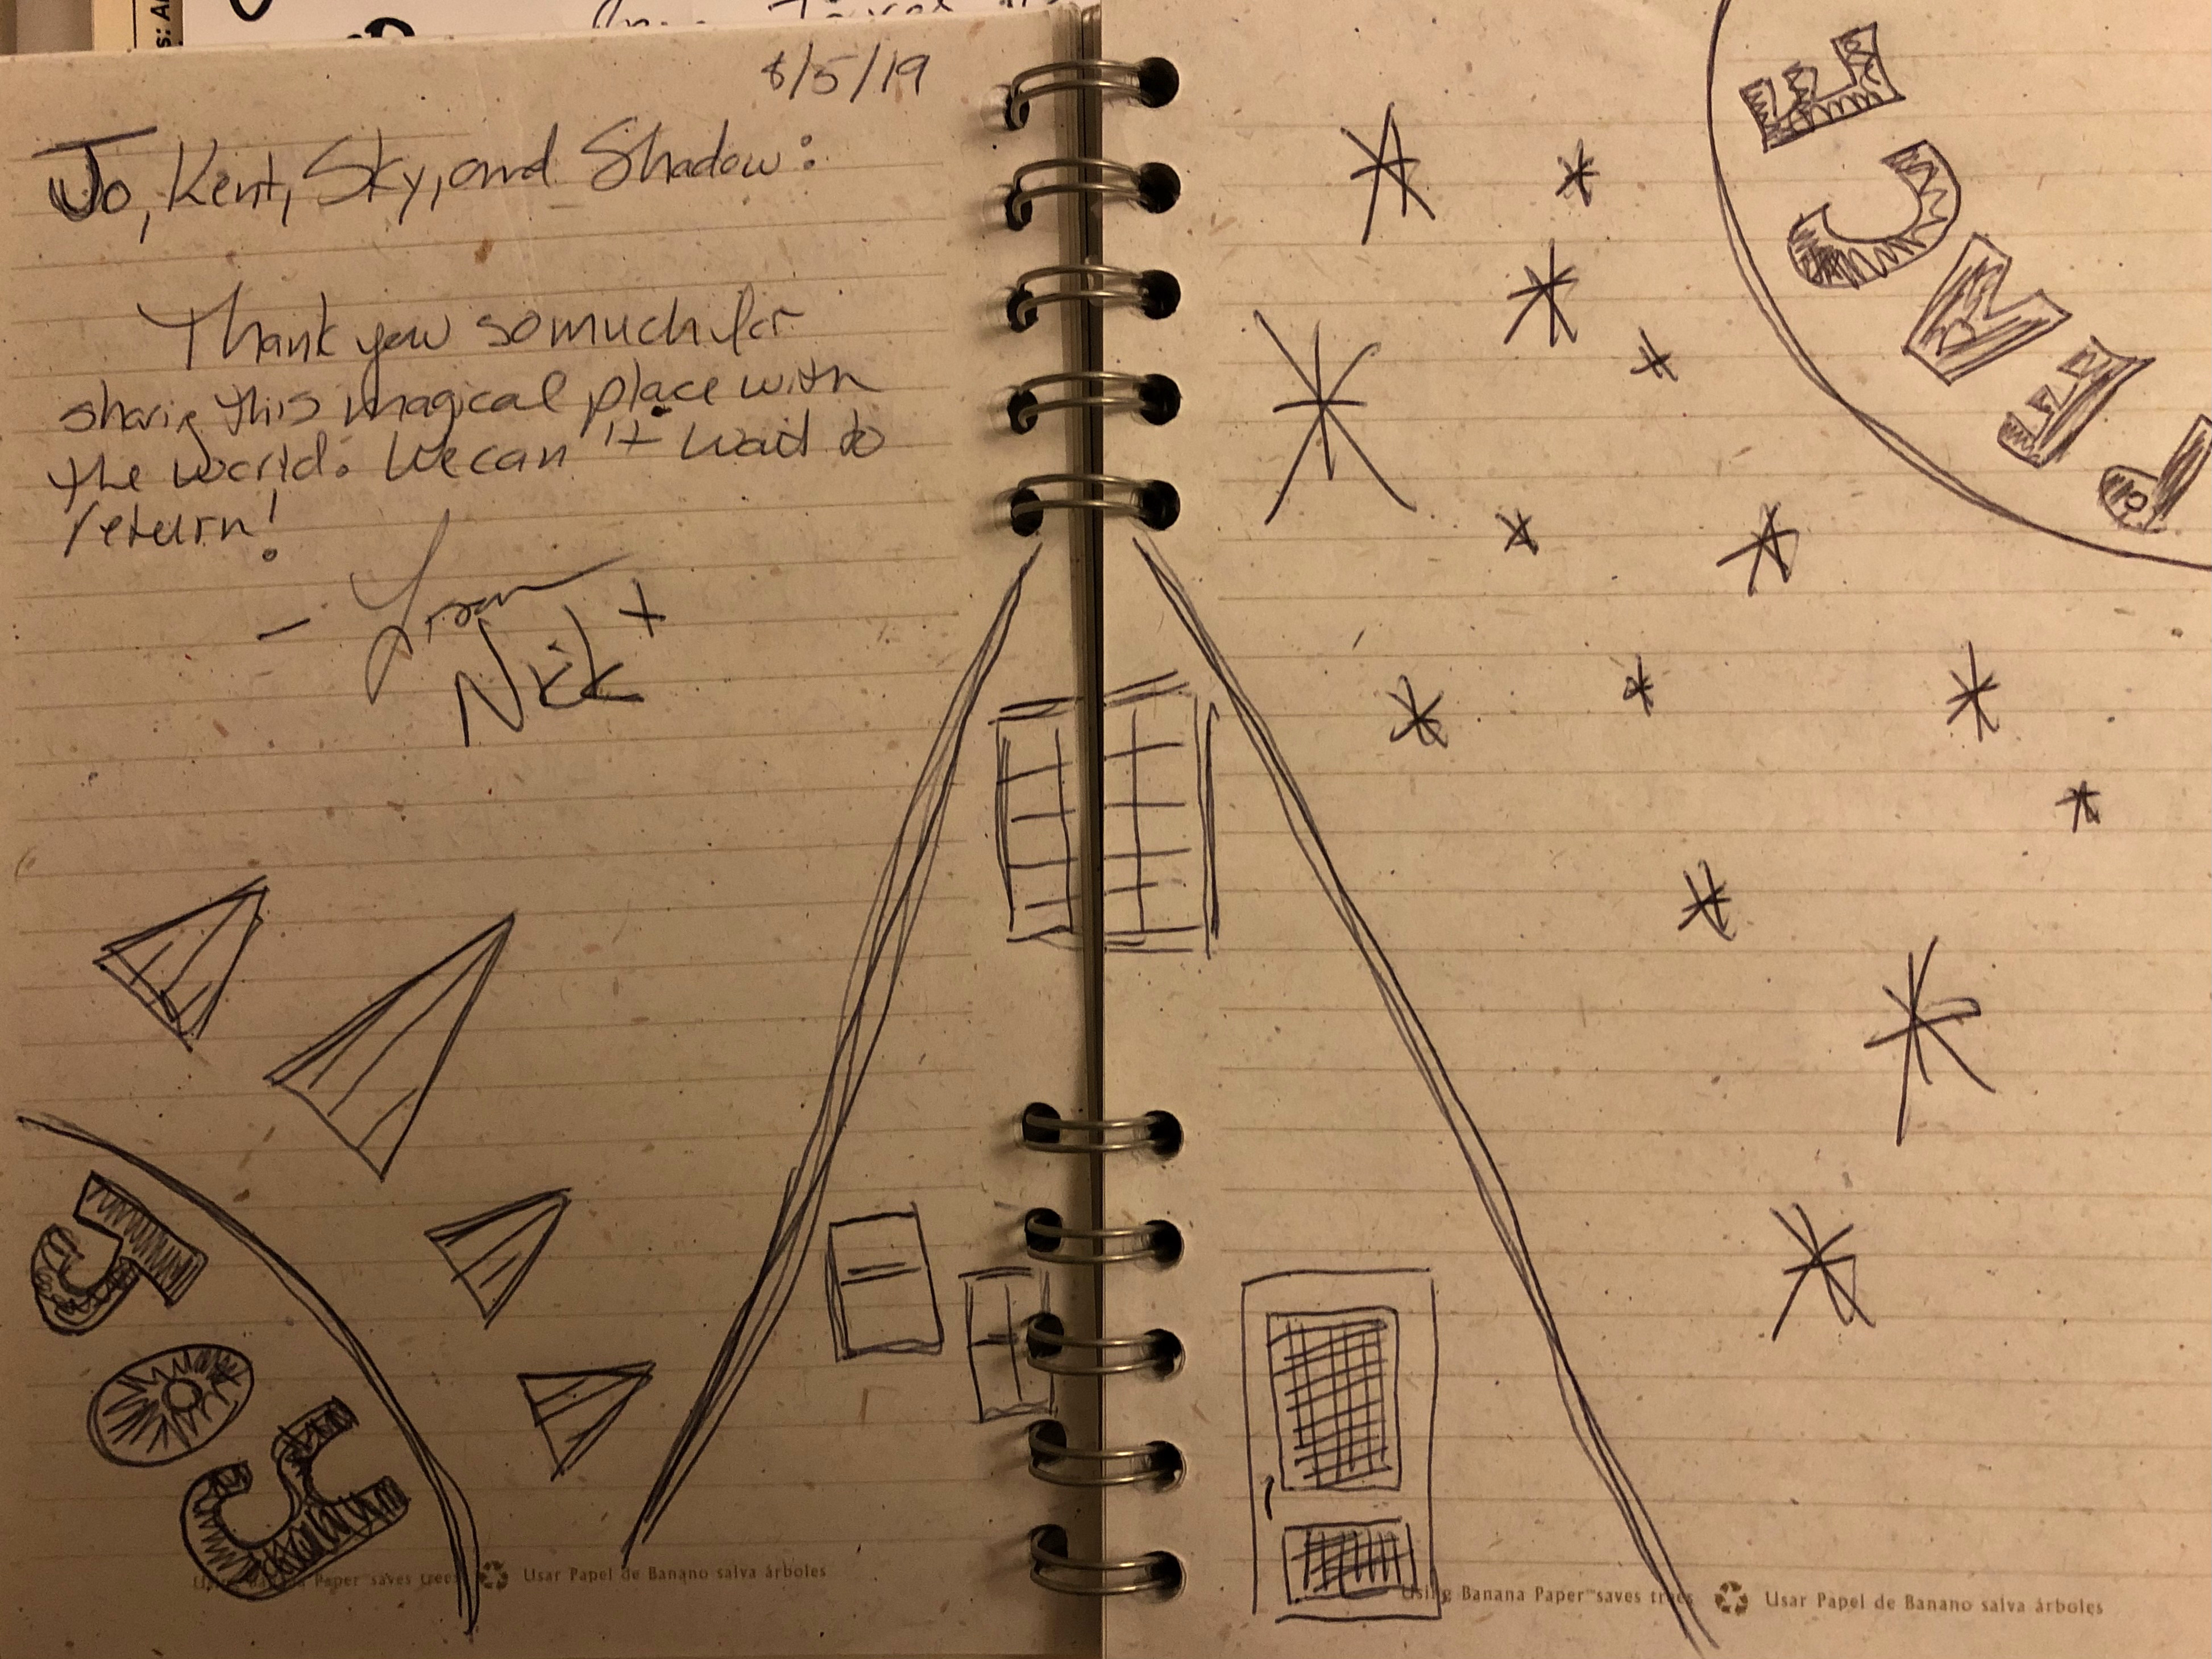 8/5/19
Jo, Kent, Sky, and Shadow:
Thank you so much for
sharig this magical place with
the world. We can't wait to
return!
- +
Nick
Using Banana Paper saves trees Usar Papel de Banano salva árboles
Using Banana Paper™ saves trees Usar Papel de Banano salva árboles